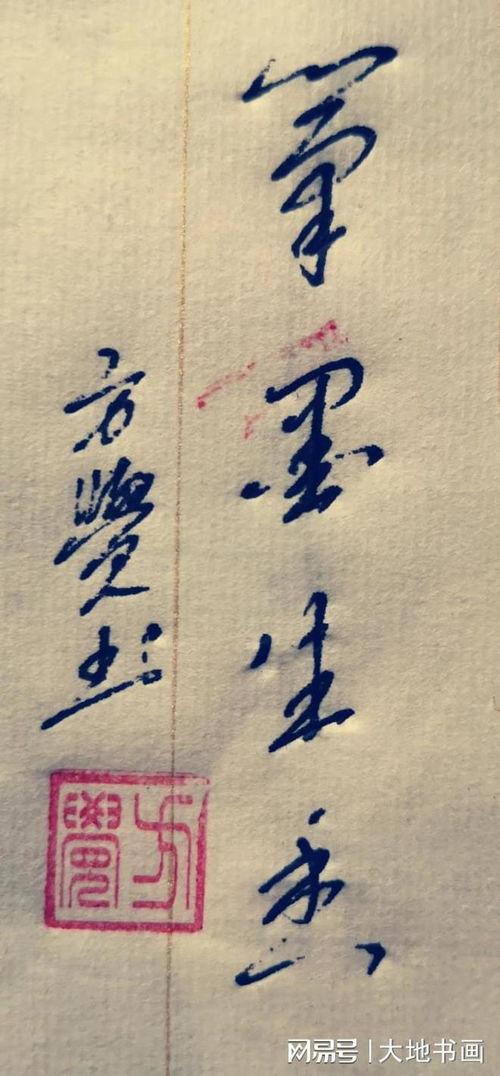 筆墨生香
方覺书
方覺
网易号 | 大地书画